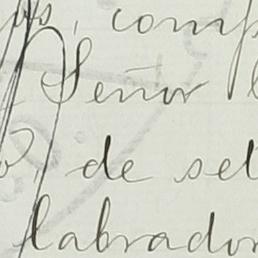 os, comp
Señor
o, de set
labrador